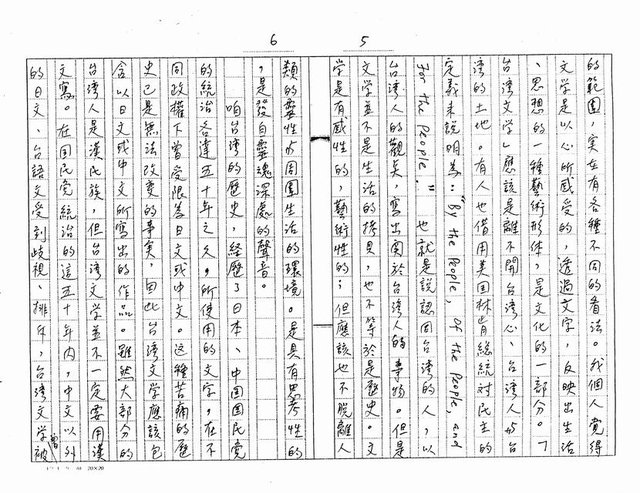 5
的範圍，實在有各種不同的看法。我個人覺得
文學是以心所感受的，透過文字，反映出生活
、思想的一種藝術形体，是文化的一部分。「
台灣文學」應該是離不開台灣心、台灣人与台
湾的土地。有人也借用美国林肯總統対民主的
定義来說明為："By the People, of the People, and
for the People,"也就是說認同台湾的人，以
台湾人的觀点，寫出関於台湾人的事物。但是
文學並不是生活的拷貝，也不等於是歷史。文
學是有感性的，藝術性的；但應該也不脫離人
6
類的靈性与周圍生活的環境。是具有思考性的
，是發自靈魂深處的聲音。
咱台湾的歷史，經歷了日本、中国国民党
的統治各達五十年之久，所使用的文字，在不
同政權下曾受限為日文或中文。这種苦痛的歷
史已是無法改变的事実，因此台湾文学應該包
含以日文或中文所寫出的作品。雖然大部分的
台灣人是漢民族，但台湾文學並不一定要用漢
文寫。在国民党統治的這五十年內，中文以外
的日文、台語文受到歧視、排斥，台湾文學曾被
20X20